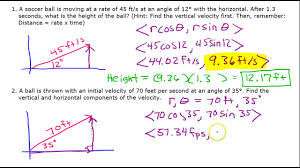 1. A soccer ball is moving at a rate of 45 ft/s at an angle of 12° with the horizontal. After 1.3
seconds, what is the height of the ball? (Hint: Find the vertical velocity first. Then, remember:
Distance = rate x time)
<r cosθ, r sinθ>
<45cos12, 45sin12>
<44.02 ft/s, 9.36 ft/s>
45 ft/s
12°
Height = (9.36)(1.3) = 12.17 ft
2. A ball is thrown with an initial velocity of 70 feet per second at an angle of 35°. Find the
vertical and horizontal components of the velocity.
r, θ = 70 ft, 35°
<70 cos 35, 70 sin 35>
<57.34 fps,
70 ft
35°